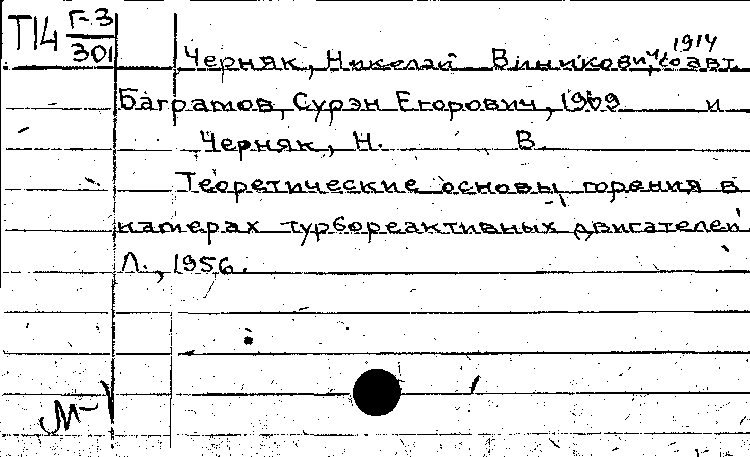 Т14 Г-3
301
Черняк, Николай Виникович, соавт. 1914
Багратов, Сурэн Егорович, 1909 и
Черняк, Н. В.
Теоретические основы горения в
камерах турбореактивных двигателей
Л., 1956.